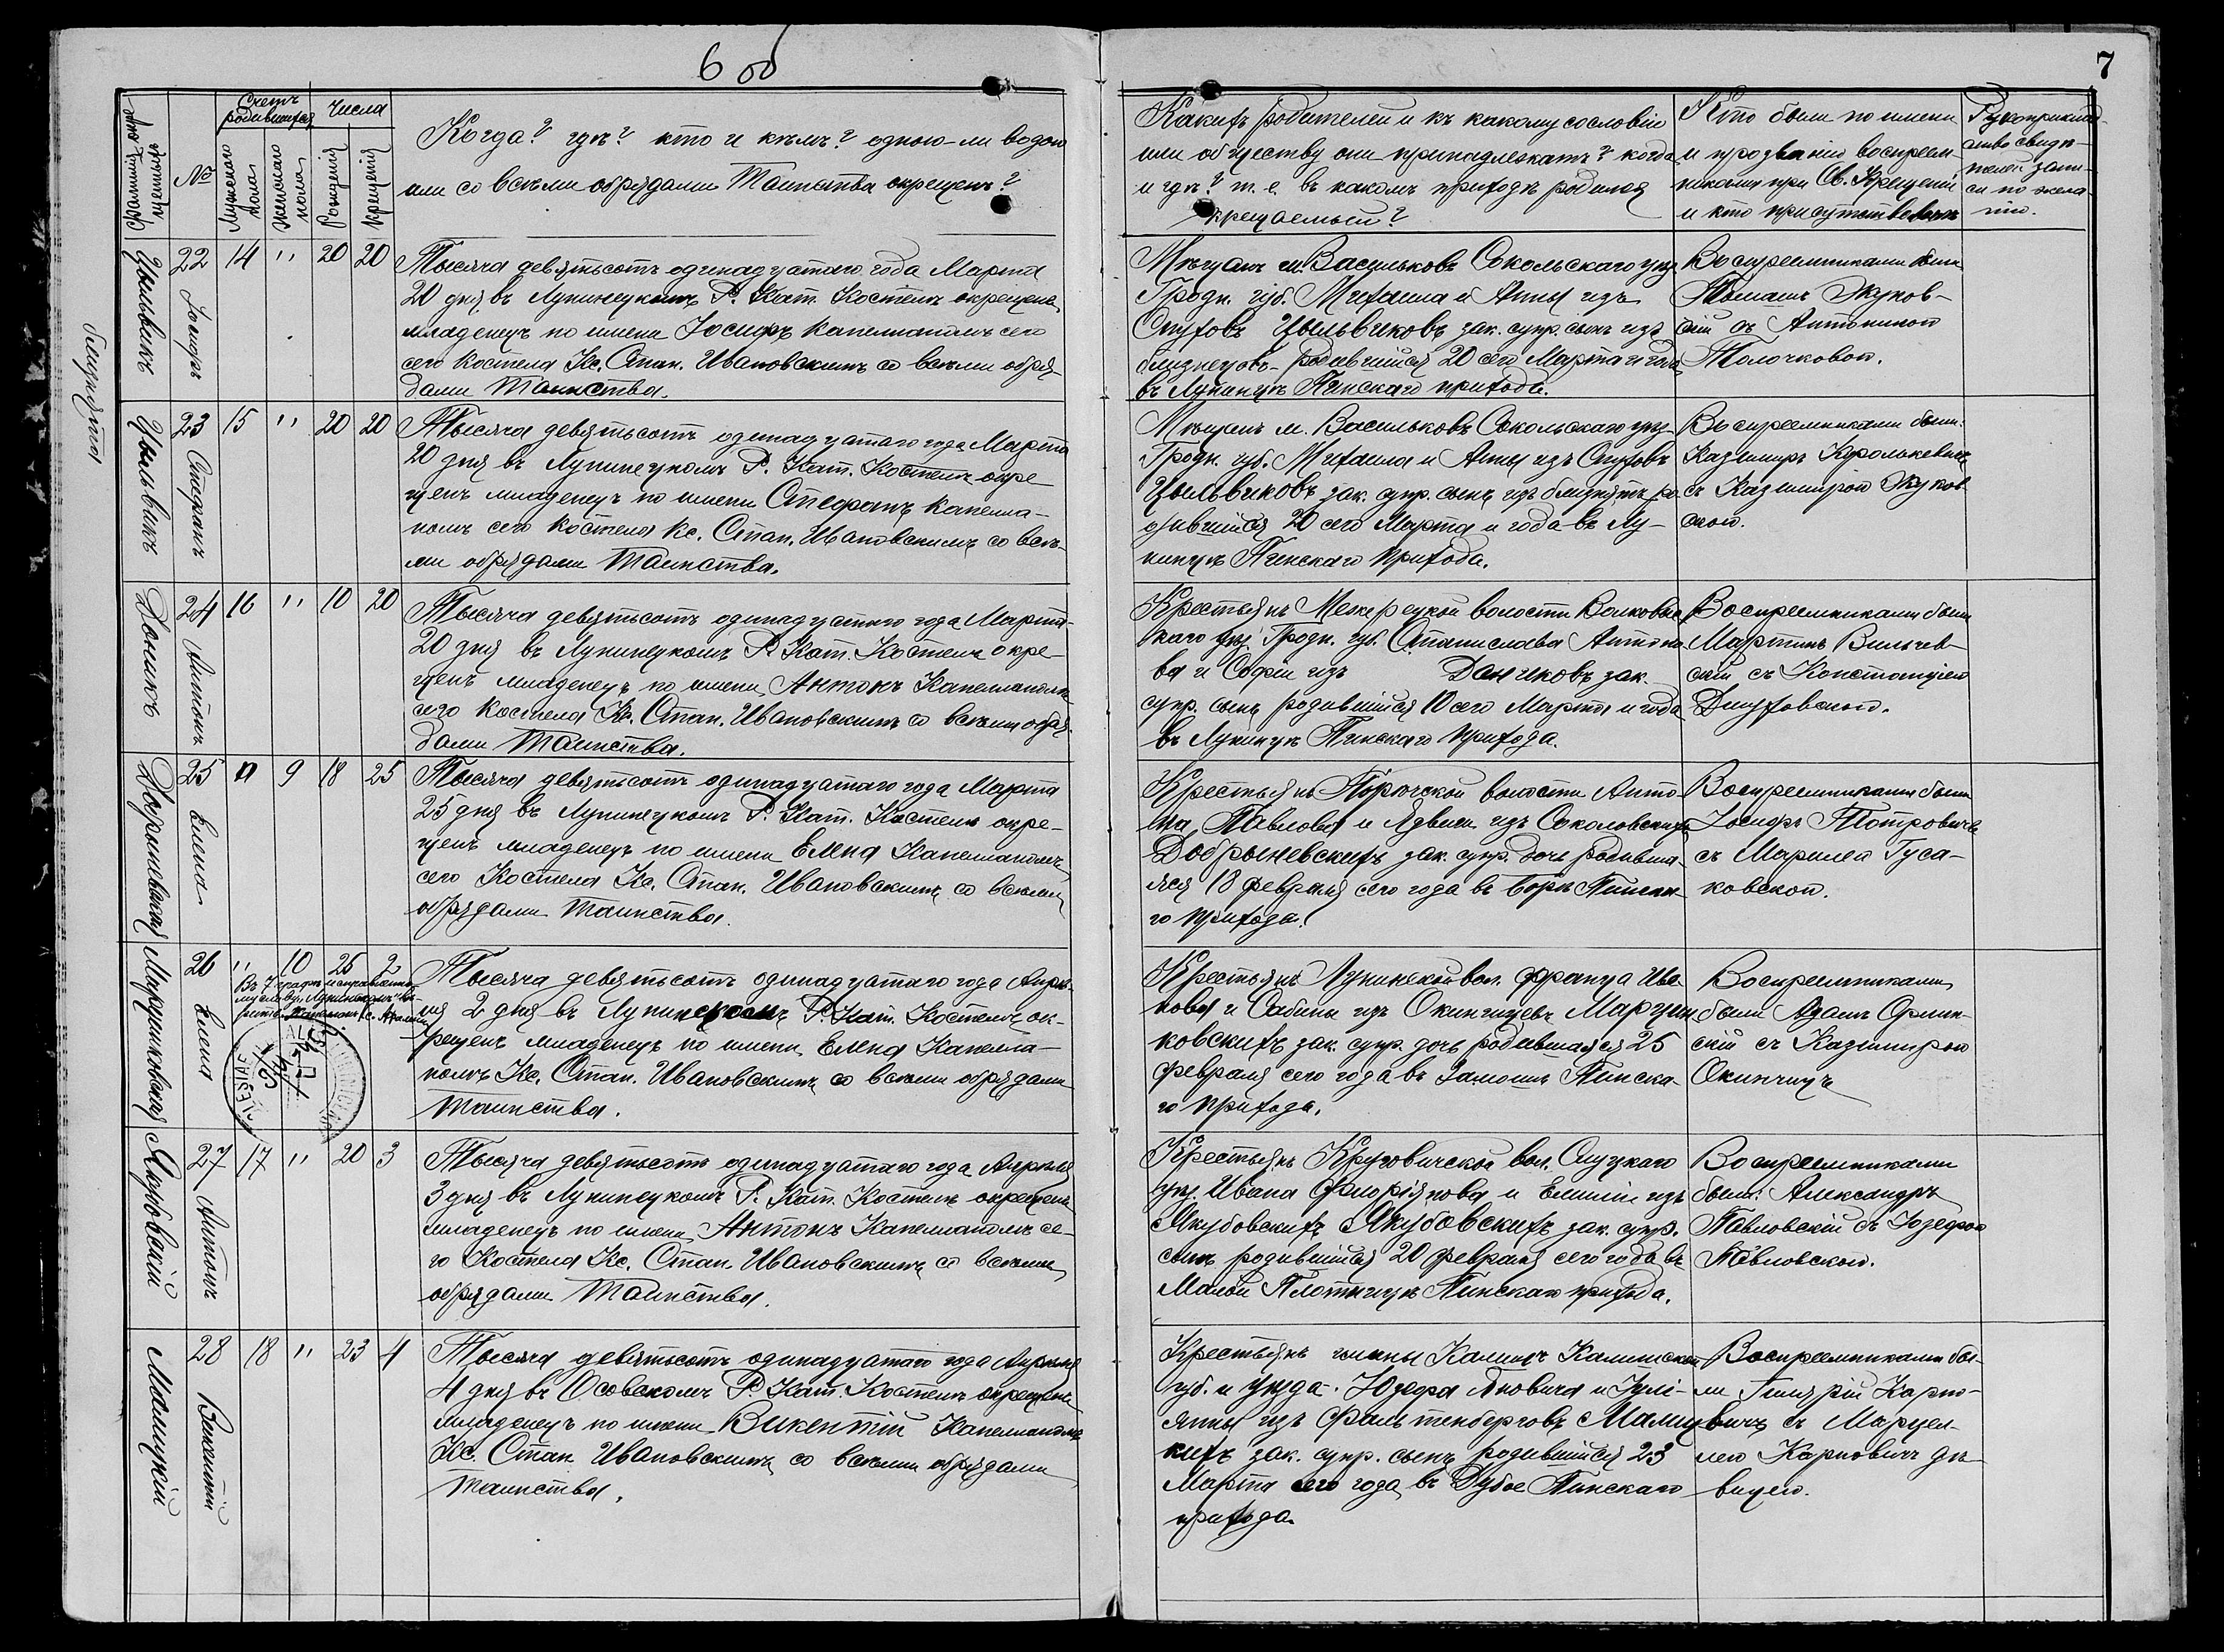 6 об
7
Фамилія
№
Счетъ родившихся
Мужского пола
Женскаго пола
Числа
Рожденія
Крещенія
Когда? гдѣ? кто и кѣмъ? одною-ли водою
или со всѣми обрядами Таинства окрещенъ?
Какихъ родителей и къ какому сословію
или обществу они принадлежатъ? когда
и гдѣ? т. е. въ какомъ приходѣ родился
крещаемый?
Кто были по имени
и прозванію воспреем-
никами при Св. Крещеніи
и кто присутствовалъ
Рукоприклад-
ство свидѣ-
телей запи-
си по жела-
нію.
близнята
Цыльвикъ
22
Іосифъ
14 " 20 20
Тысяча девятьсотъ одинадцатаго года Марта
20 дня въ Лунинецкомъ Р. Кат. Костелѣ окрещенъ
младенецъ по имени Іосифъ Капелланомъ сего
сего костела Кс. Стан. Ивановскимъ со всѣми обря-
дами Таинства.
Мѣщанъ м. Васильковъ Сокольскаго уѣз.
Гродн. губ. Михаила и Анны изъ
Опуховъ Цыльвиковъ зак. супр. сынъ изъ
близнецовъ родившійся 20 сего Марта и года
въ Лунинцѣ Пинскаго прихода.
Воспреемниками были
Томашъ Жуков-
скій съ Антониной
Толочковой.
Цыльвикъ
23
Стефанъ
15 " 20 20
Тысяча девятьсотъ одинадцатаго года Марта
20 дня въ Лунинецкомъ Р. Кат. Костелѣ окре-
щенъ младенецъ по имени Стефанъ Капелла-
номъ сего костела Кс. Стан. Ивановскимъ со всѣ-
ми обрядами Таинства.
Мѣщанъ м. Васильковъ Сокольскаго уѣз.
Гродн. губ. Михаила и Анны изъ Опуховъ
Цыльвиковъ зак. супр. сынъ изъ близнятъ ро-
дившійся 20 сего Марта и года въ Лу-
нинцѣ Пинскаго прихода.
Воспреемниками были:
Казимиръ Королькевичъ
съ Казимірой Жуков-
ской.
24
Антонъ
16 " 10 20
Тысяча девятьсотъ одинадцатаго года Марта
20 дня въ Лунинецкомъ Р. Кат. Костелѣ окре-
щенъ младенецъ по имени Антонъ Капелланомъ
сего костела Кс. Стан. Ивановскимъ со всѣми обря-
дами Таинства.
Крестьянъ Межерецкой волости Волковыс-
каго уѣз. Гродн. губ. Станислава Антоно-
ва и Софіи изъ зак.
супр. сынъ родившійся 10 сего Марта и года
въ Лунинцѣ Пинскаго прихода.
Воспреемниками были
Мартинъ Вильчев-
скій съ Констанціею
Добрыневская
25
Елена
" 9 18 25
Тысяча девятьсотъ одинадцатаго года Марта
25 дня въ Лунинецкомъ Р. Кат. Костелѣ окре-
щенъ младенецъ по имени Елена Капелланомъ
сего Костела Кс. Стан. Ивановскимъ со всѣми
обрядами Таинства.
Крестьянъ Порѣчской волости Анто-
на Павлова и Ядвиги изъ Соколовскихъ
Добрыневскихъ зак. супр. дочь родивша-
яся 18 февраля сего года въ Боркѣ Пинска-
го прихода.
Воспреемниками были
Іосифъ Піотровичъ
съ Марилей Гуса-
ковской.
Марцинковская
26
Елена
" 10 25 2
Въ 7 графѣ исправленно-
му слову "Лунинецкомъ" вѣ-
рить.
Тысяча девятьсотъ одинадцатаго года Апрѣ-
ля 2 дня въ Лунинецкомъ Р. Кат. Костелѣ ок-
рещенъ младенецъ по имени Елена Капелла-
номъ Кс. Стан. Ивановскимъ со всѣми обрядами
Таинства.
Крестьянъ Лунинской вол. Франца Ива-
нова и Сабины изъ Окинчицевъ Марцин
ковскихъ зак. супр. дочь родившаяся 25
февраля сего года въ Замошьѣ Пинска-
го прихода.
Воспреемниками
были Адамъ
скій съ Казимирой
Окинчицъ
Якубовскій
27
Антонъ
17 " 20 3
Тысяча девятьсотъ одинадцатаго года Апрѣля
3 дня въ Лунинецкомъ Р. Кат. Костелѣ окрещенъ
младенецъ по имени Антонъ Капелланомъ се-
го Костела Кс. Стан. Ивановскимъ со всѣми
обрядами Таинства.
Крестьянъ Круговичской вол. Слуцкаго
уѣз. Ивана Флоріянова и Емиліи изъ
Якубовскихъ Якубовскихъ зак. супр.
сынъ родившійся 20 февраля сего года въ
Малой Плотницѣ Пинскаго прихода.
Воспреемниками
были: Александръ
Павловскій съ Юзефой
Павловской.
Малицкій
28
Викентій
18 " 23 4
Тысяча девятьсотъ одинадцатаго года Апрѣля
4 дня въ Осовскомъ Р. Кат. Костелѣ окрещенъ
младенецъ по имени Викентій Капелланомъ
Кс. Стан. Ивановскимъ со всѣми обрядами
Таинства.
Крестьянъ гмины Калишъ Калишской
губ. и уѣзда Юзефа Яновича и Іулі-
янны изъ Фальтенберговъ Малиц
кихъ зак. супр. сынъ родившійся 23
Марта сего года въ Дубое Пинскаго
прихода.
Воспреемниками бы-
ли Гилярій Карпо-
вичъ съ Марцел-
лею Карповичъ дѣ-
вицею.